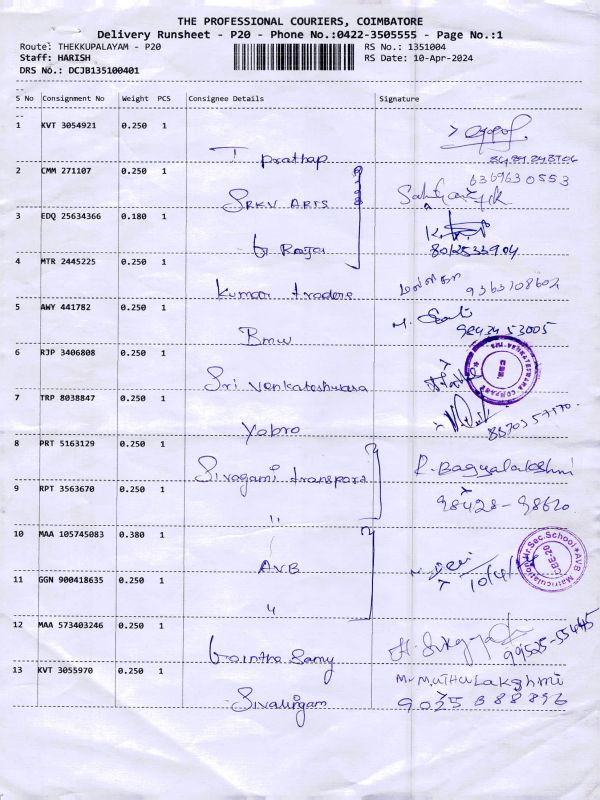 THE PROFESSIONAL COURIERS, COIMBATORE
Delivery Runsheet - P20 - Phone No.:0422-3505555 - Page No.:1
Route: THEKKUPALAYAM - P20 RS No.: 1351004
Staff: HARISH RS Date: 10-Apr-2024
DRS No.: DCJB135100401
S No Consignment No Weight PCS Consignee Details Signature
1 KVT 3054921 0.250 1
T prathap
2 CMM 271107 0.250 1 6369630553
SRKV ARTS
3 EDQ 25634366 0.180 1
G Raja 8012533904
4 MTR 2445225 0.250 1
Kumar traders 9363108602
5 AWY 441782 0.250 1
Bmw 98434 53005
6 RJP 3406808 0.250 1
Sri Venkateshwara
7 TRP 8038847 0.250 1
Yobro 8870357170
8 PRT 5163129 0.250 1
Sivagami transport R. Bagyalakshmi
9 RPT 3563670 0.250 1 98428-98620
"
10 MAA 105745083 0.380 1
AVB 10/4/24
AVB Matriculation Hr.Sec.School
11 GGN 900418635 0.250 1
"
12 MAA 573403246 0.250 1
Gointha Samy 99525-55445
13 KVT 3055970 0.250 1 MUTHULakshmi
Sivalingam 9025888896